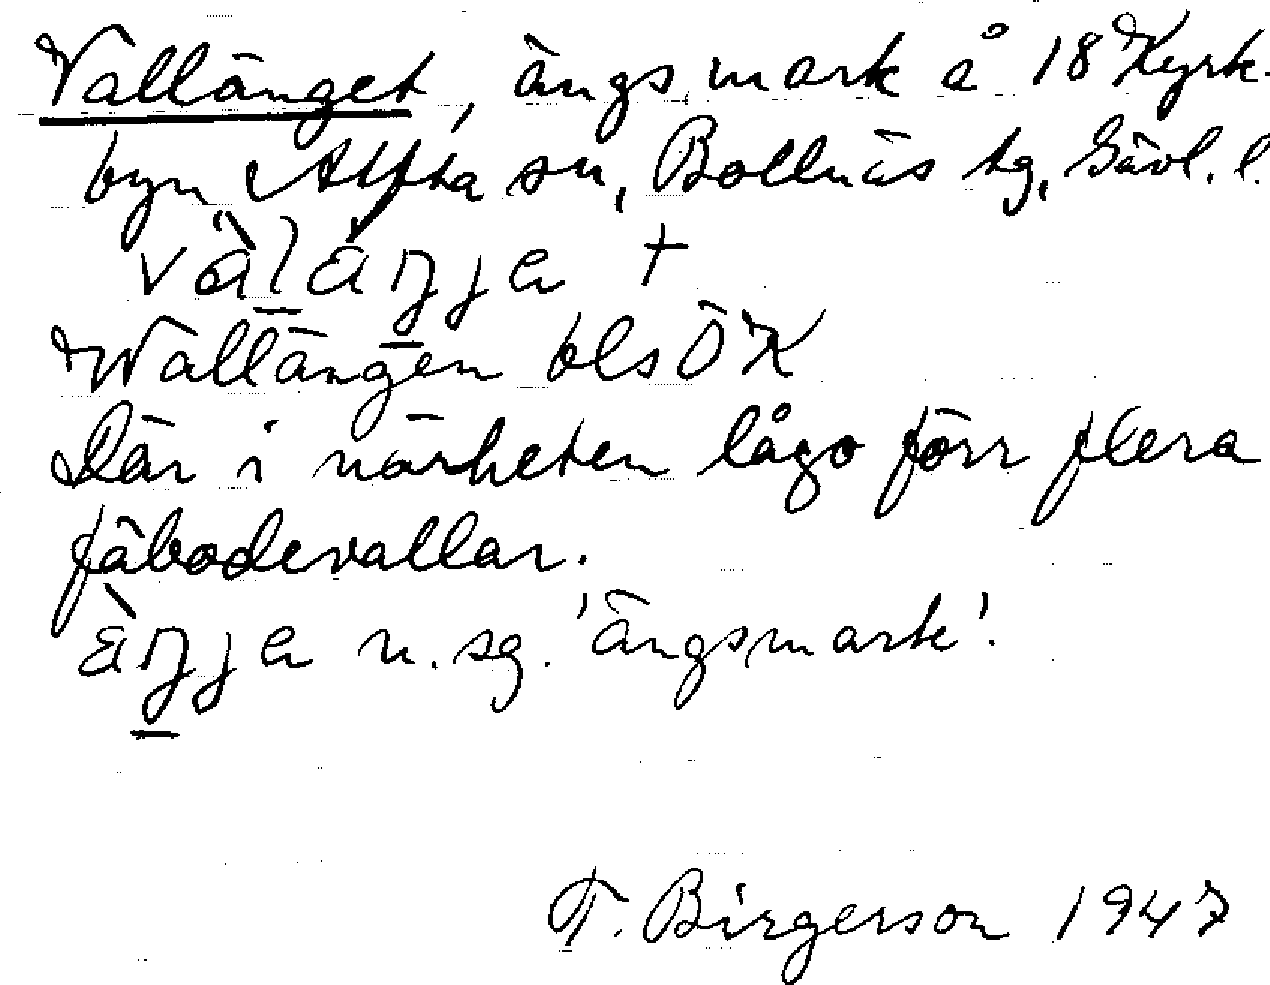 Vallänget, ängsmark å 18 Kyrk-
byn Alfta sn, Bollnäs tg, Gävl. l.
välàŋja +
Wallängen bls ÖK
Där i närheten lågo förr flera
fäbodevallar.
àŋja n. sg. 'ängsmark'.
T. Birgerson 1947